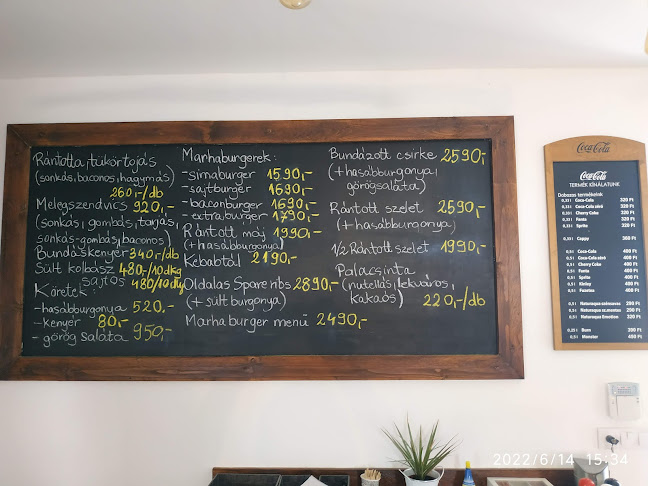 Rántotta, tükörtojás
(sonkás, baconos, hagymás)
260,-/db
Melegszendvics 920,-
(sonkás, gombás, tojás,
sonkás-gombás, baconos)
Bundáskenyér 340,-/db
Sült kolbász 480,-/10dkg
sajtos 480/10dkg
Köretek:
-hasábburgonya 520,-
-kenyér 80,-
- görög saláta 950,-
Marhaburgerek:
-simaburger 1590,-
-sajtburger 1690,-
-baconburger 1690,-
-extraburger 1790,-
Rántott máj 1990,-
(+hasábburgonya)
Kebabtól 2190,-
Oldalas Spare ribs 2890,-
(+ sült burgonya)
Marhaburger menü 2490,-
Bundázott csirke 2590,-
(+hasábburgonya,
görögsaláta)
Rántott szelet 2590,-
(+hasábburgonya)
1/2 Rántott szelet 1990,-
Palacsinta
(nutellás, lekváros,
kakaós) 220,-/db
Coca-Cola
Coca-Cola
TERMÉK KÍNÁLATUNK
Dobozos termékeink
0,33 l Coca-Cola 320 Ft
0,33 l Coca-Cola zéró 320 Ft
0,33 l Cherry Coke 320 Ft
0,33 l Fanta 320 Ft
0,33 l Sprite 320 Ft
Cappy 360 Ft
0,5 l Coca-Cola 400 Ft
0,5 l Coca-Cola zéró 400 Ft
0,5 l Cherry Coke 400 Ft
0,5 l Fanta 400 Ft
0,5 l Sprite 400 Ft
0,5 l Kinley 400 Ft
0,5 l Fuzetea 400 Ft
0,5 l Naturaqua szénsavas 280 Ft
0,5 l Naturaqua sz.mentes 280 Ft
Naturaqua Emotion 320 Ft
0,25 l Burn 390 Ft
0,5 l Monster 490 Ft
2022/6/14 15:34